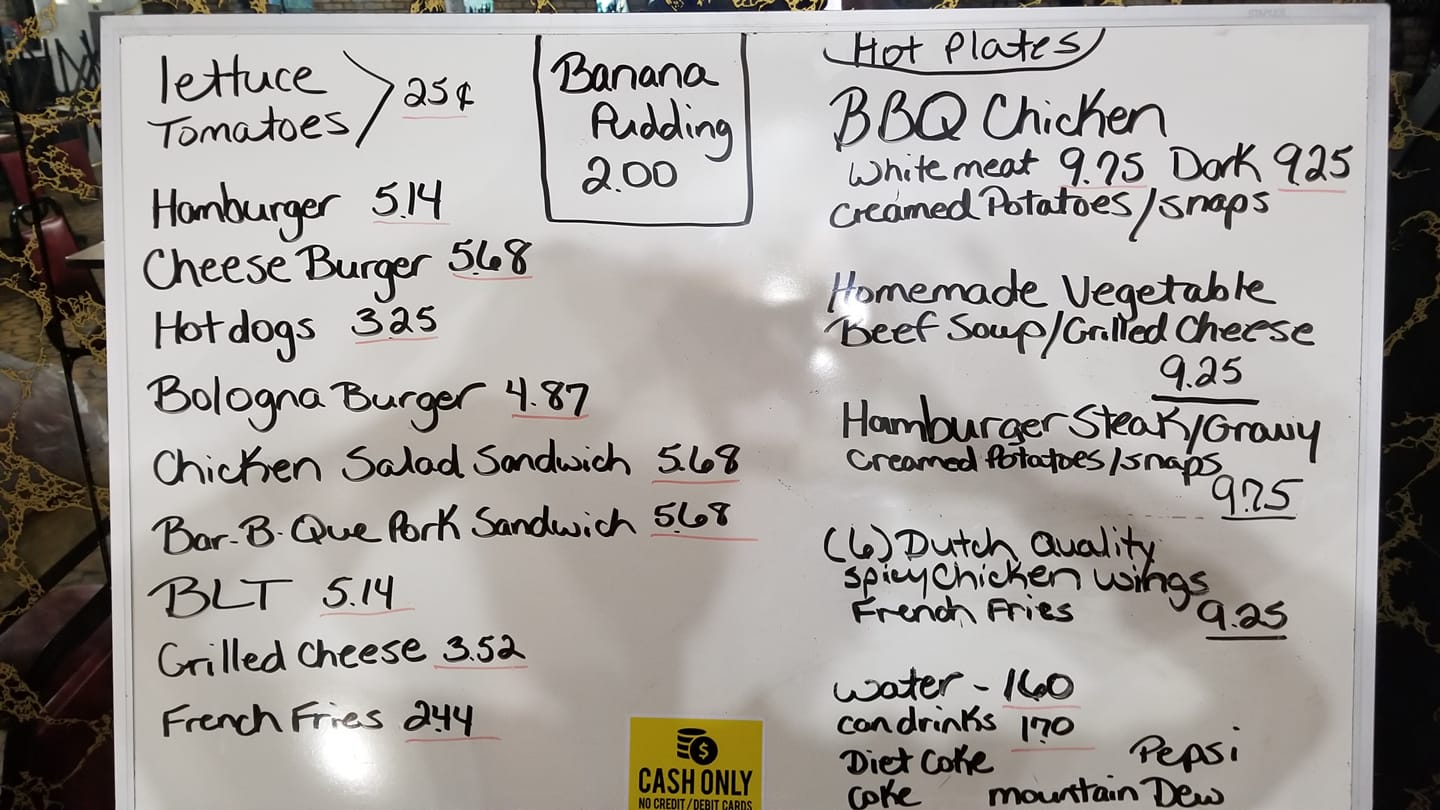 lettuce
Tomatoes > 25¢
Hamburger 5.14
Cheese Burger 5.68
Hotdogs 3.25
Bologna Burger 4.87
Chicken Salad Sandwich 5.68
Bar-B-Que Pork Sandwich 5.68
BLT 5.14
Grilled Cheese 3.52
French Fries 2.44
Banana
Pudding
2.00
Hot Plates
BBQ Chicken
White meat 9.75 Dark 9.25
Creamed Potatoes/snaps
Homemade Vegetable
Beef Soup/Grilled Cheese
9.25
Hamburger Steak/Gravy
Creamed Potatoes/snaps
9.75
(6) Dutch Quality
Spicy Chicken Wings
French Fries 9.25
Water - 1.60
can drinks 1.70
Diet Coke Pepsi
Coke mountain Dew
CASH ONLY
NO CREDIT / DEBIT CARDS